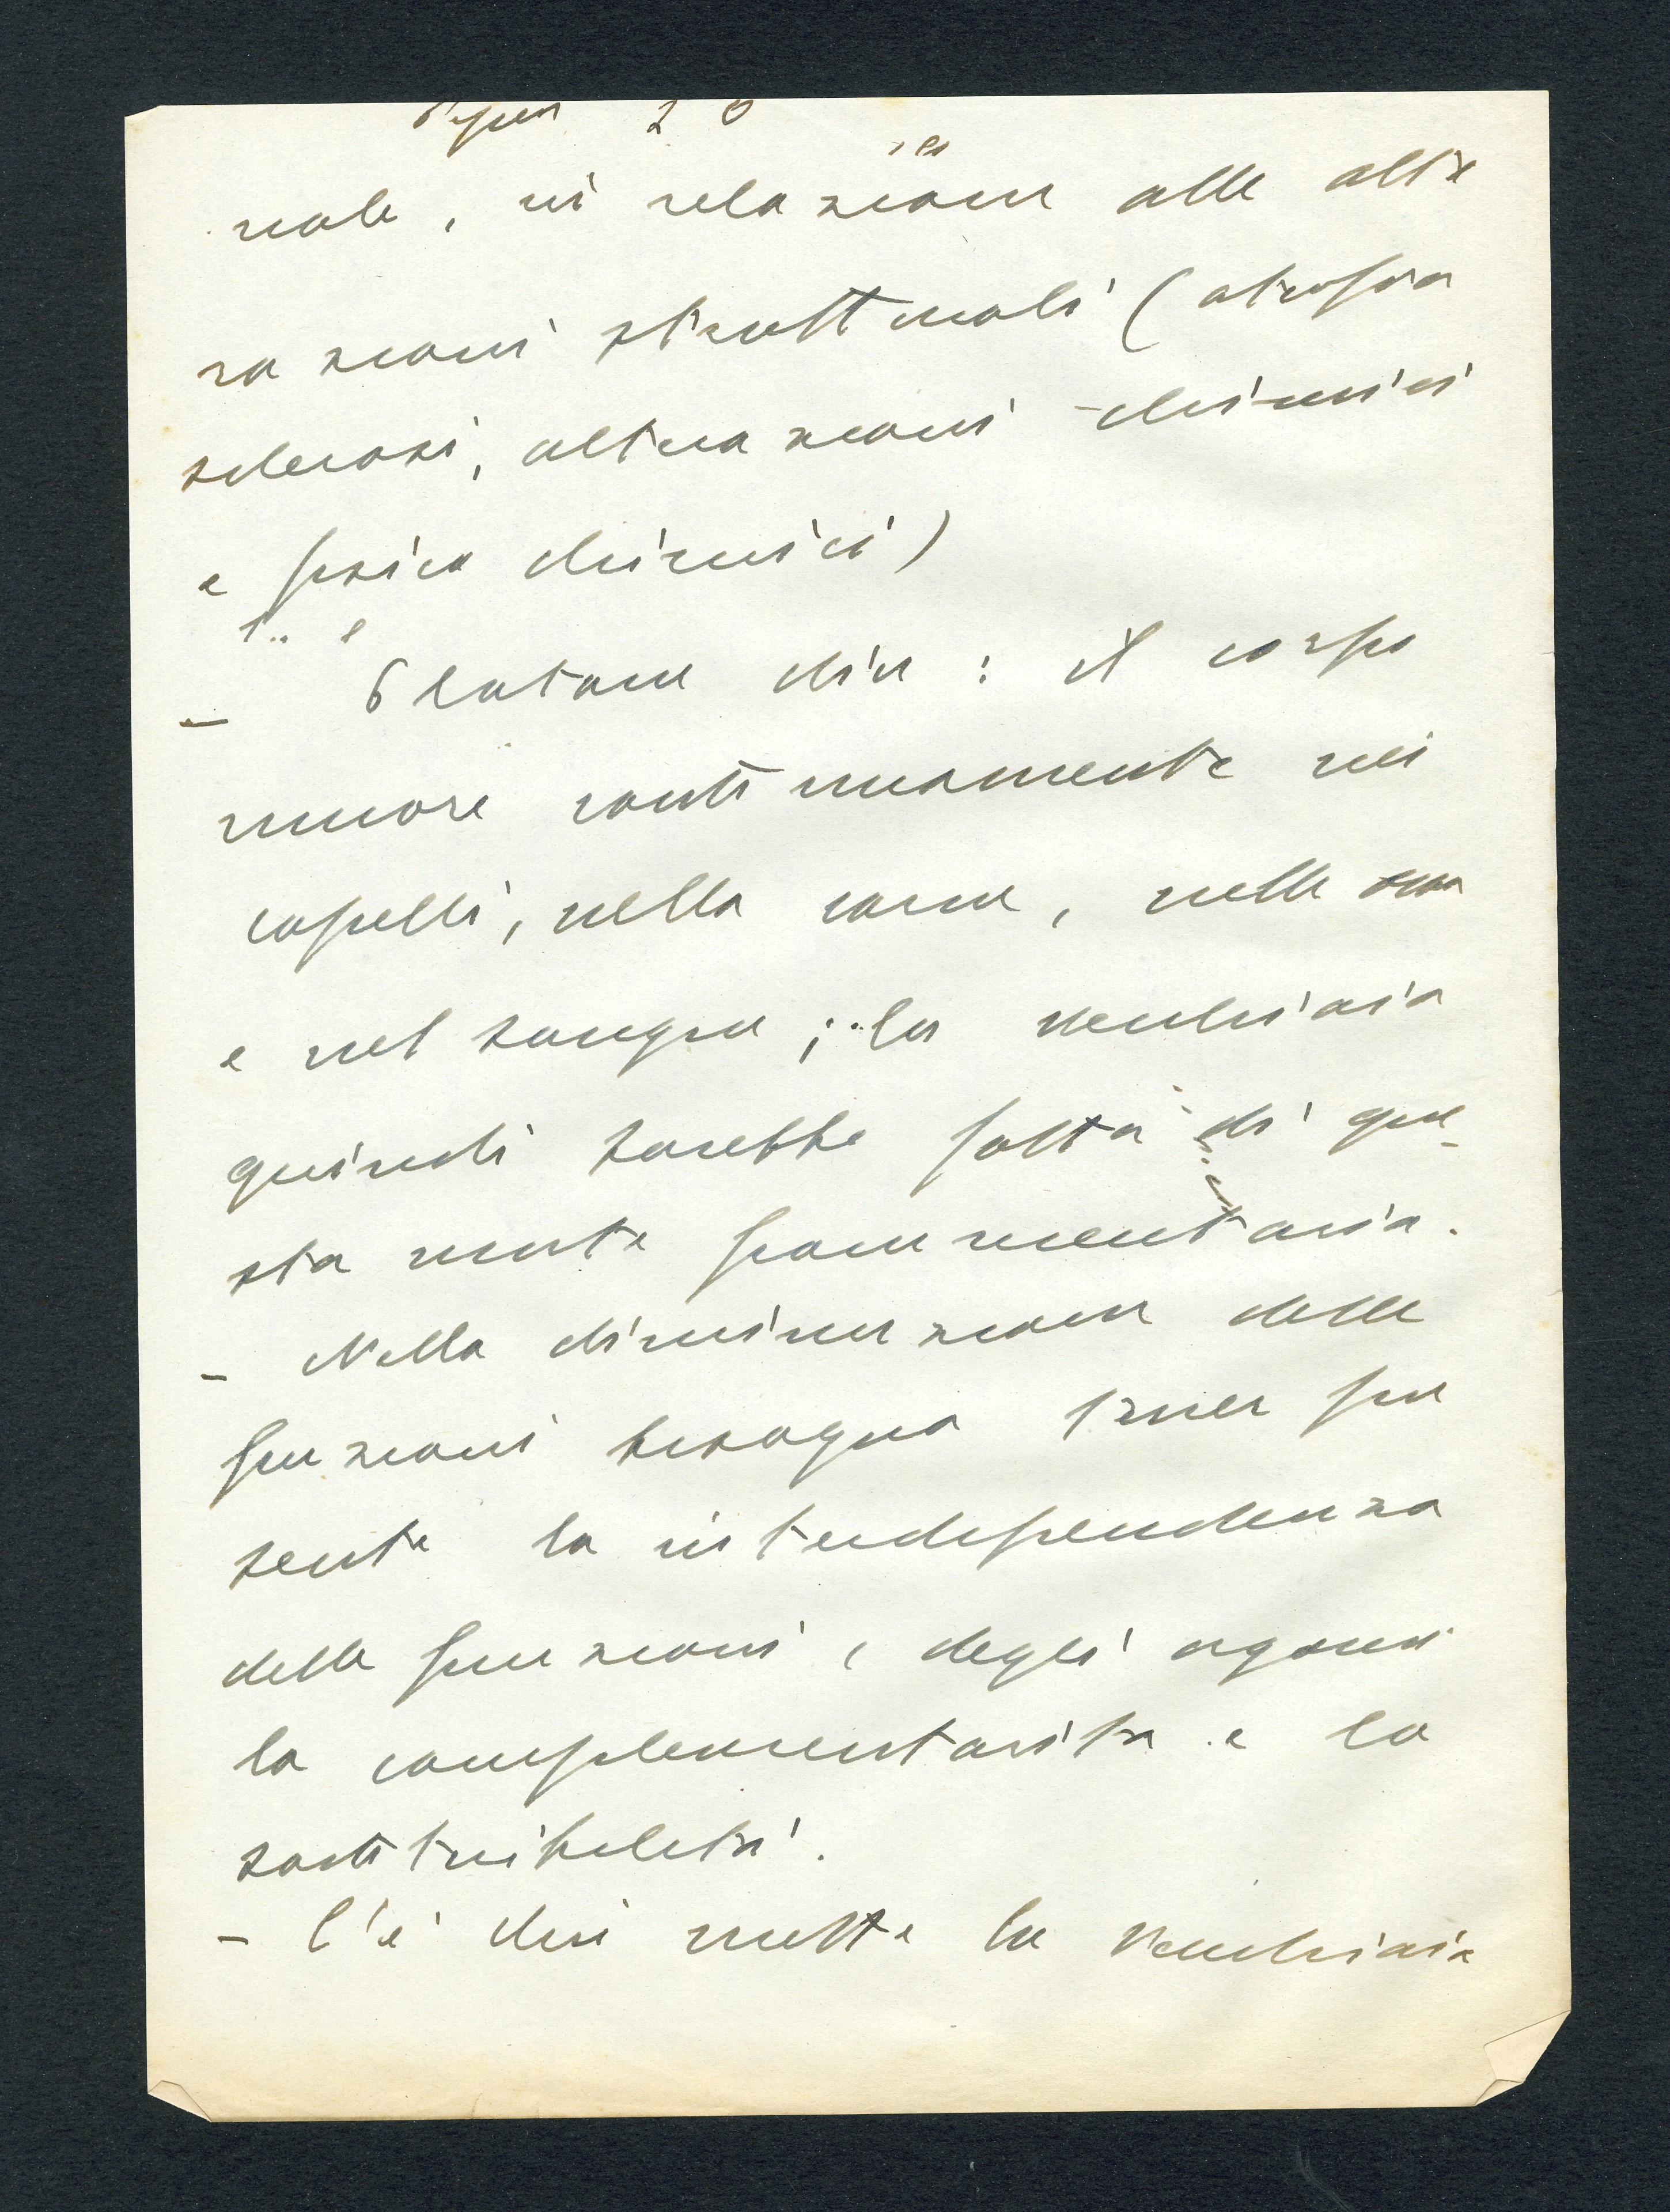 nale, in relazione alle alte
razioni strutturali (atrofia
sclerosi, alterazioni chimici
e fisico chimici)
- Platone dice: il corpo
muore continuamente nei
capelli, nella carne, nelle ossa
e nel sangue; la vecchiaia
quindi sarebbe fatta di que-
sta morte frammentaria.
- Nella diminuzione delle
funzioni bisogna tener pre
sente la interdipendenza
delle funzioni, degli organi
la complementarità e la
sostituibilità.
- C'è chi mette la vecchiaia